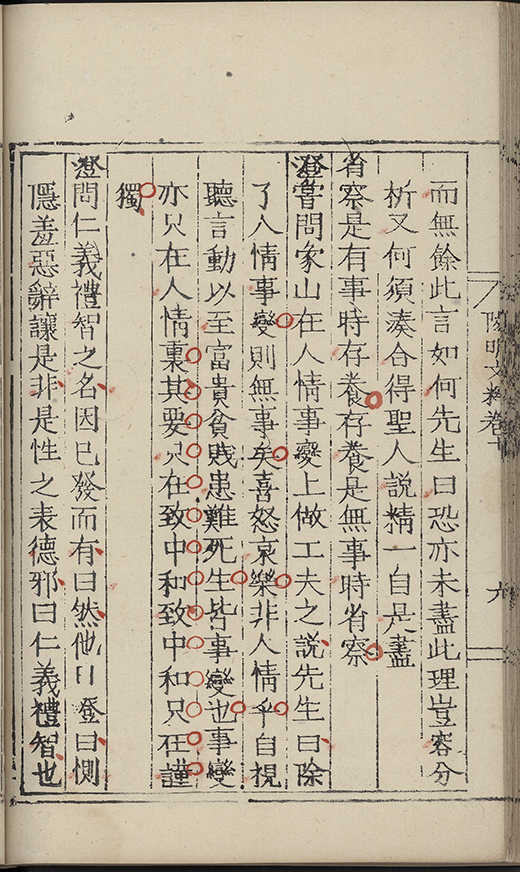 陽明文粹卷十
六
而無餘此言如何先生曰恐亦未盡此理豈容分
析又何須湊合得聖人說精一自是盡
省察是有事時存養存養是無事時省察
澄嘗問象山在人情事變上做工夫之說先生曰除
了人情事變則無事矣喜怒哀樂非人情乎自視
聽言動以至富貴貧賤患難死生皆事變也事變
亦只在人情裏其要只在致中和致中和只在謹
獨
澄問仁義禮智之名因已發而有曰然他日澄曰惻
隱羞惡辭讓是非是性之表德邪曰仁義禮智也